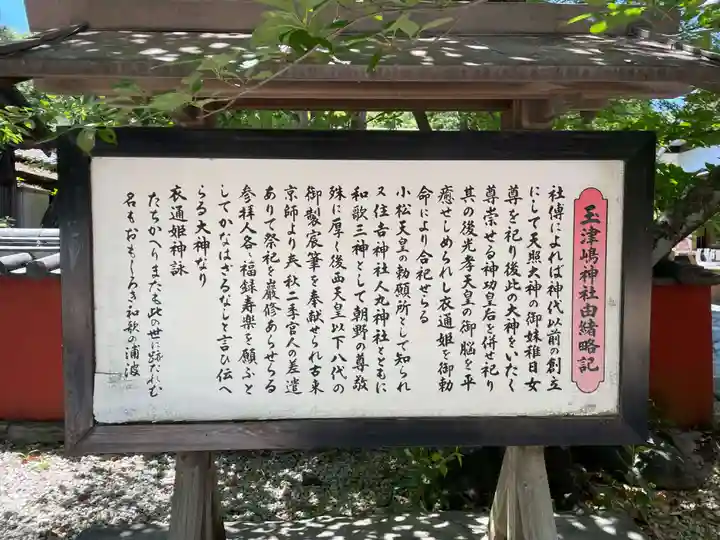 玉津嶋神社由緒略記
社傳によれば神代以前の創立
にして天照大神の御妹稚日女
尊を祀り後此の大神をいたく
尊崇せる神功皇后を併せ祀り
其の後光孝天皇の御脳を平
癒せしめられし衣通姫を御勅
命により合祀せらる
小松天皇の勅願所として知られ
又住吉神社人丸神社とともに
和歌三神として朝野の尊敬
殊に厚く後西天皇以下八代の
御製宸筆を奉献せられ古来
京師より春秋二季官人の差遣
ありて祭祀を厳修あらせらる
参拝人各〻福録寿楽を願ふと
してかなはざるなしと言ひ伝へ
らる大神なり
衣通姫神詠
たちかへりまたも此の世に跡たれむ
名もおもしろき和歌の浦波